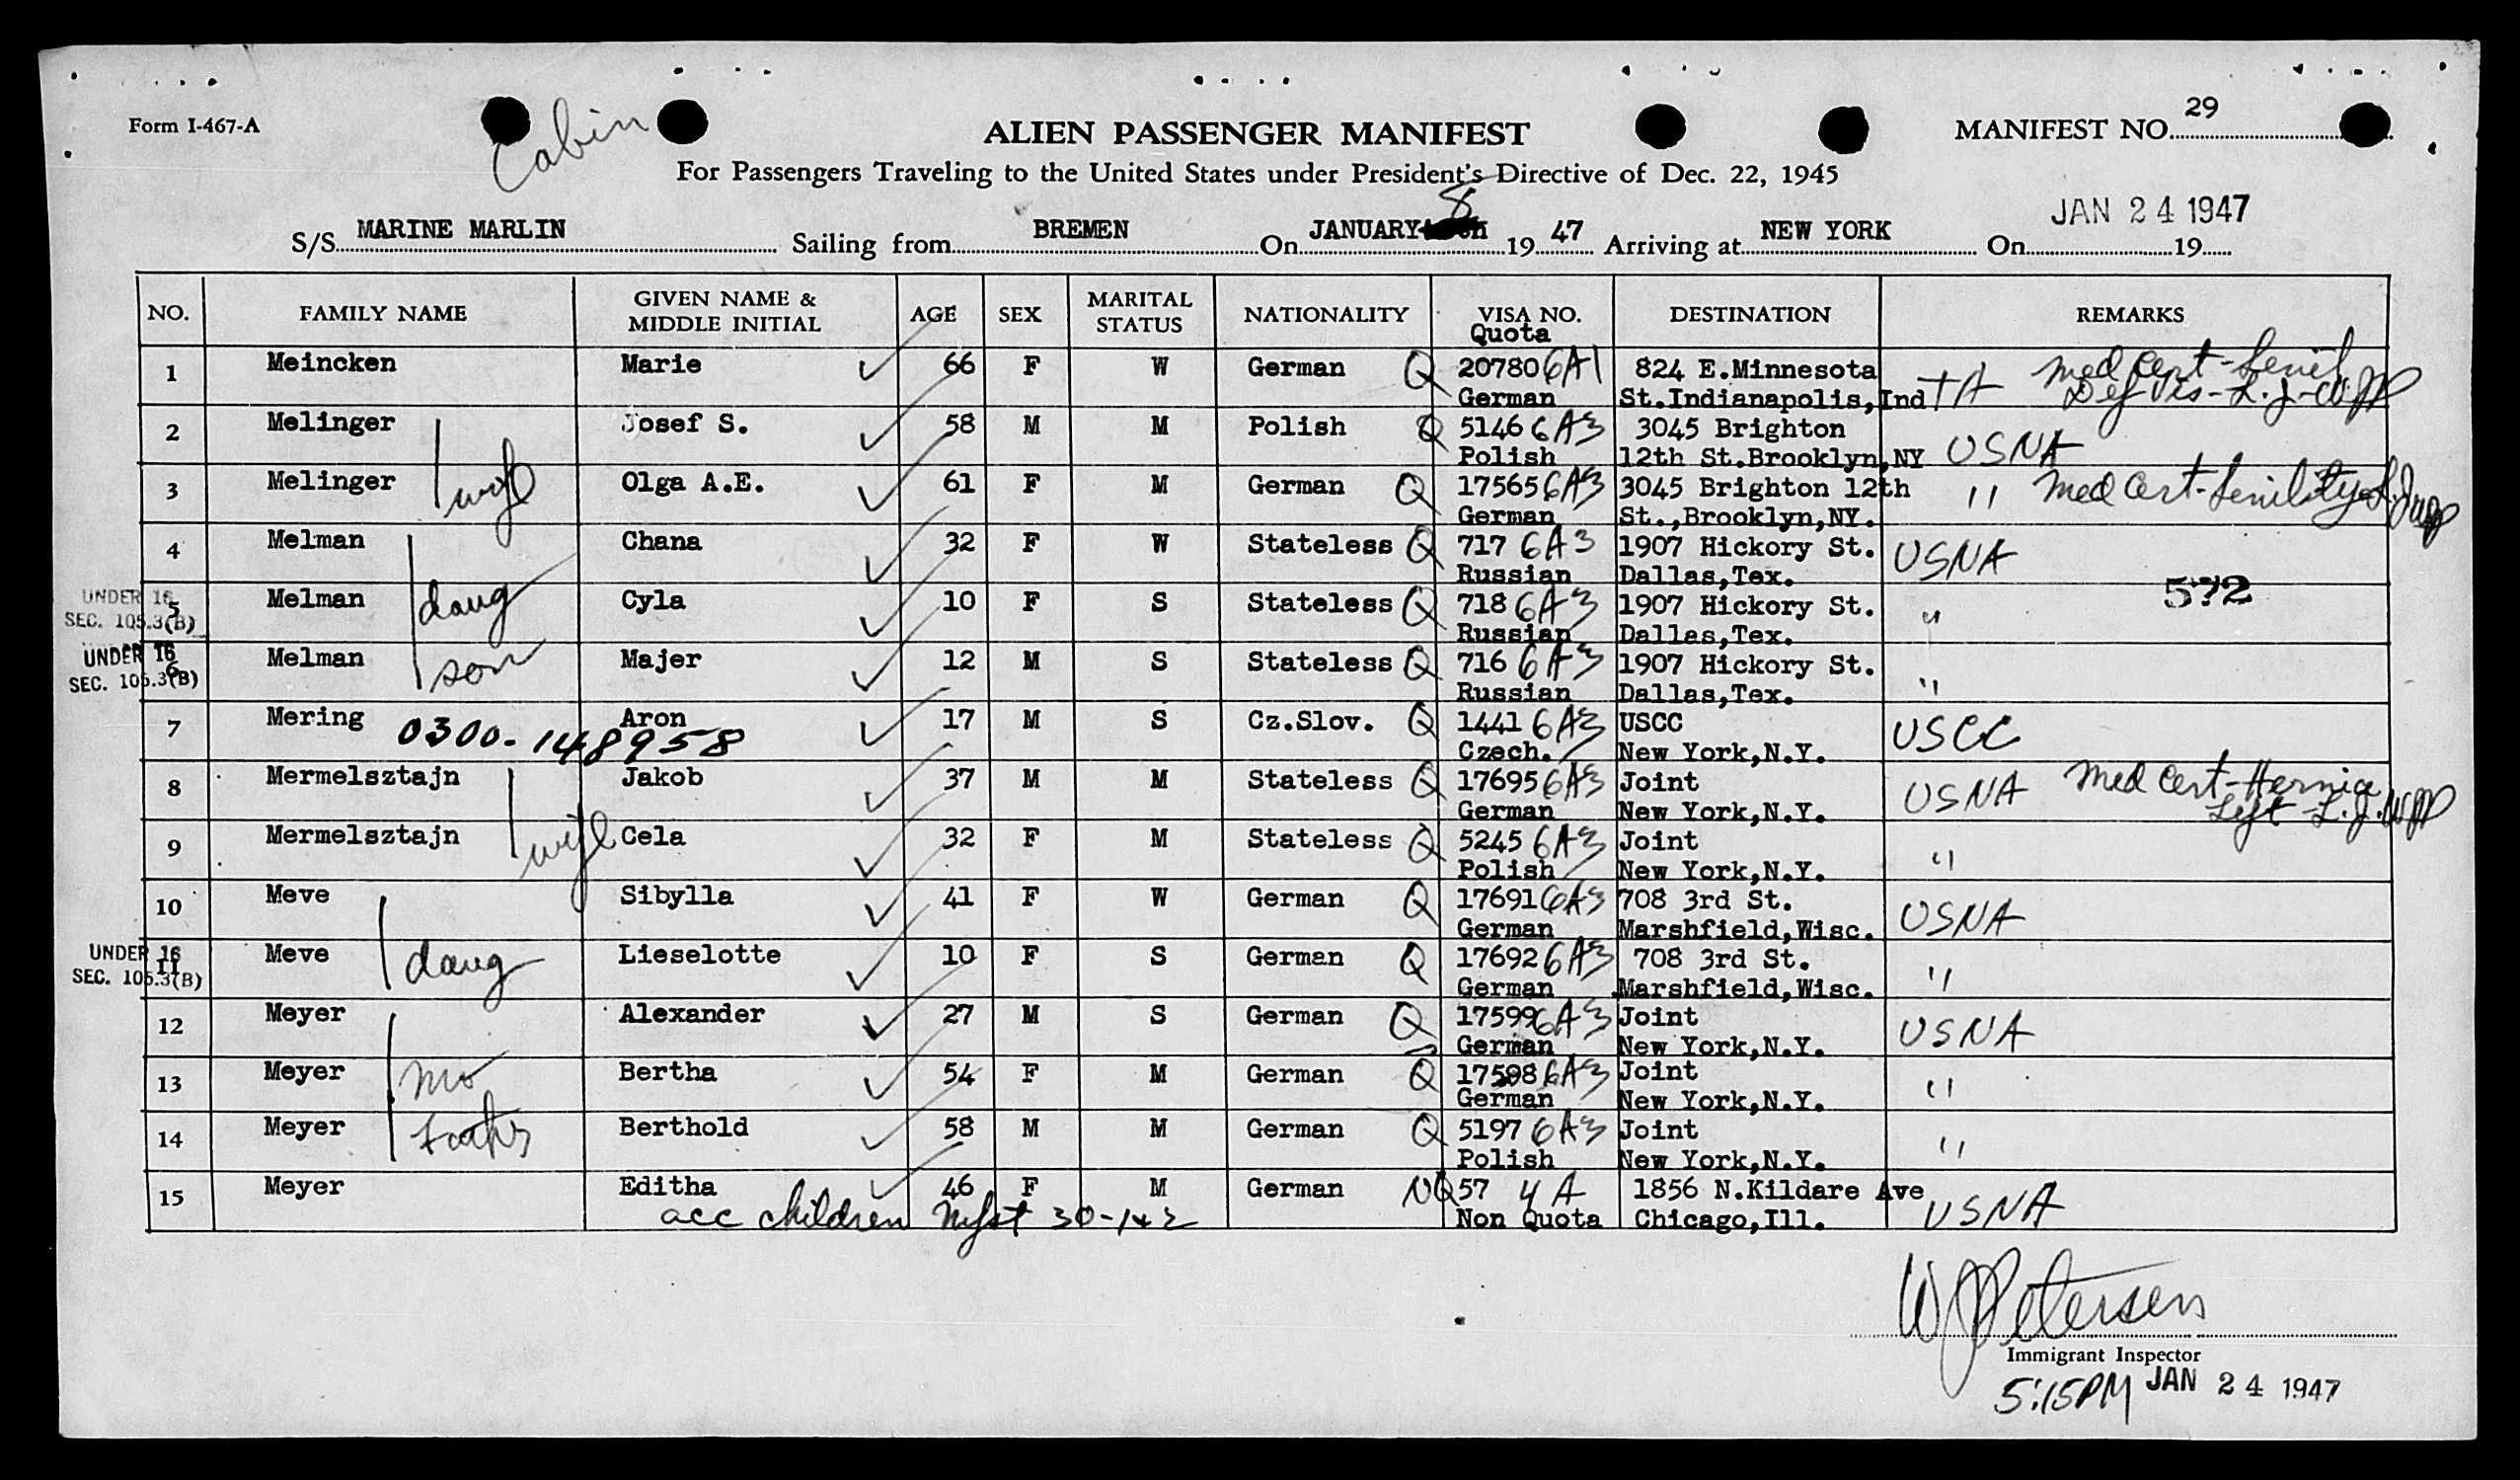 Form I-467-A
Cabin
ALIEN PASSENGER MANIFEST
MANIFEST NO. 29
For Passengers Traveling to the United States under President's Directive of Dec. 22, 1945
S/S MARINE MARLIN Sailing from BREMEN On JANUARY 8 19 47 Arriving at NEW YORK On JAN 24 1947 19
NO. FAMILY NAME GIVEN NAME & MIDDLE INITIAL AGE SEX MARITAL STATUS NATIONALITY VISA NO. Quota DESTINATION REMARKS
1 Meincken Marie 66 F W German Q 20780 6A1 824 E.Minnesota Med Cert-Senil
German St.Indianapolis,Ind TA Def Vis-L.J-WJP
2 Melinger Josef S. 58 M M Polish Q 5146 6A3 3045 Brighton
Polish 12th St.Brooklyn,NY USNA
3 Melinger wife Olga A.E. 61 F M German Q 17565 6A3 3045 Brighton 12th " Med Cert-Senility
German St.,Brooklyn,NY.
4 Melman Chana 32 F W Stateless Q 717 6A3 1907 Hickory St. USNA
Russian Dallas,Tex.
572
UNDER 16 SEC. 105.3(B)
5 Melman daug Cyla 10 F S Stateless Q 718 6A3 1907 Hickory St. "
Russian Dallas,Tex.
UNDER 16 SEC. 105.3(B)
6 Melman son Majer 12 M S Stateless Q 716 6A3 1907 Hickory St. "
Russian Dallas,Tex.
7 Mering Aron 17 M S Cz.Slov. Q 1441 6A3 USCC USCC
0300-148958 Czech. New York,N.Y.
8 Mermelsztajn Jakob 37 M M Stateless Q 17695 6A3 Joint USNA Med Cert-Hernia
German New York,N.Y. Left L.J. WJP
9 Mermelsztajn wife Cela 32 F M Stateless Q 5245 6A3 Joint "
Polish New York,N.Y.
10 Meve Sibylla 41 F W German Q 17691 6A3 708 3rd St. USNA
German Marshfield,Wisc.
UNDER 16 SEC. 105.3(B)
11 Meve daug Lieselotte 10 F S German Q 17692 6A3 708 3rd St. "
German Marshfield,Wisc.
12 Meyer Alexander 27 M S German Q 17599 6A3 Joint USNA
German New York,N.Y.
13 Meyer mo Bertha 54 F M German Q 17598 6A3 Joint "
German New York,N.Y.
14 Meyer Berthold 58 M M German Q 5197 6A3 Joint "
Polish New York,N.Y.
15 Meyer Editha 46 F M German NQ 57 4A 1856 N.Kildare Ave USNA
acc children Mfst 30-1+2 Non Quota Chicago,Ill.
WJPetersen
Immigrant Inspector
5:15PM JAN 24 1947